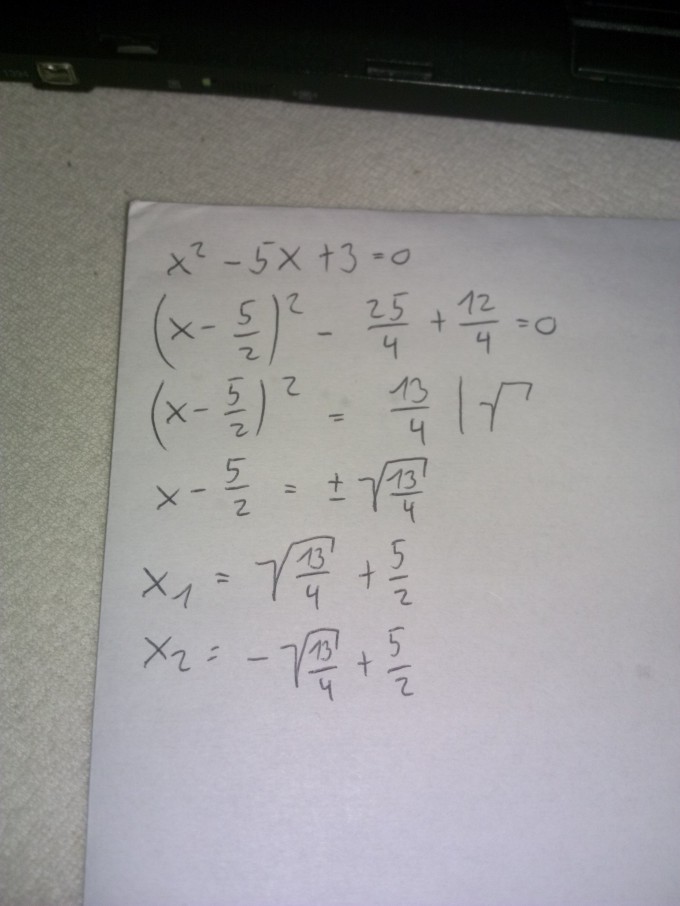 x² - 5x + 3 = 0
(x - 5/2)² - 25/4 + 12/4 = 0
(x - 5/2)² = 13/4 | √
x - 5/2 = ± √(13/4)
x₁ = √(13/4) + 5/2
x₂ = - √(13/4) + 5/2